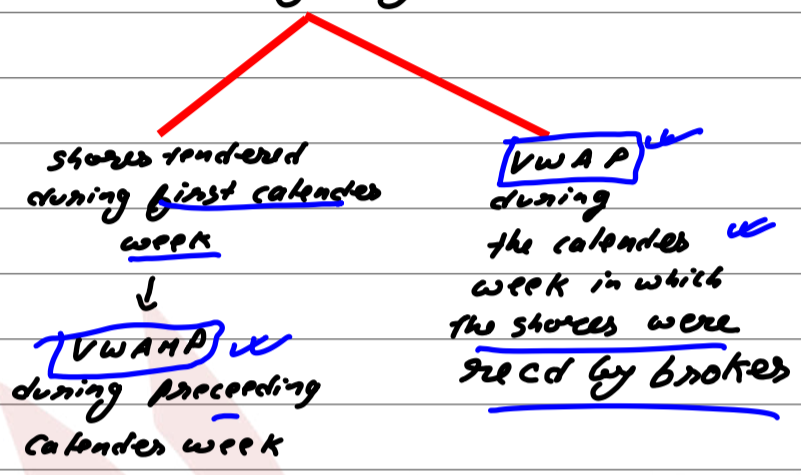 shares tendered
during first calender
week
↓
VWAMP
during preceeding
Calender week
VWAP
during
the calender
week in which
the shares were
recd by broker